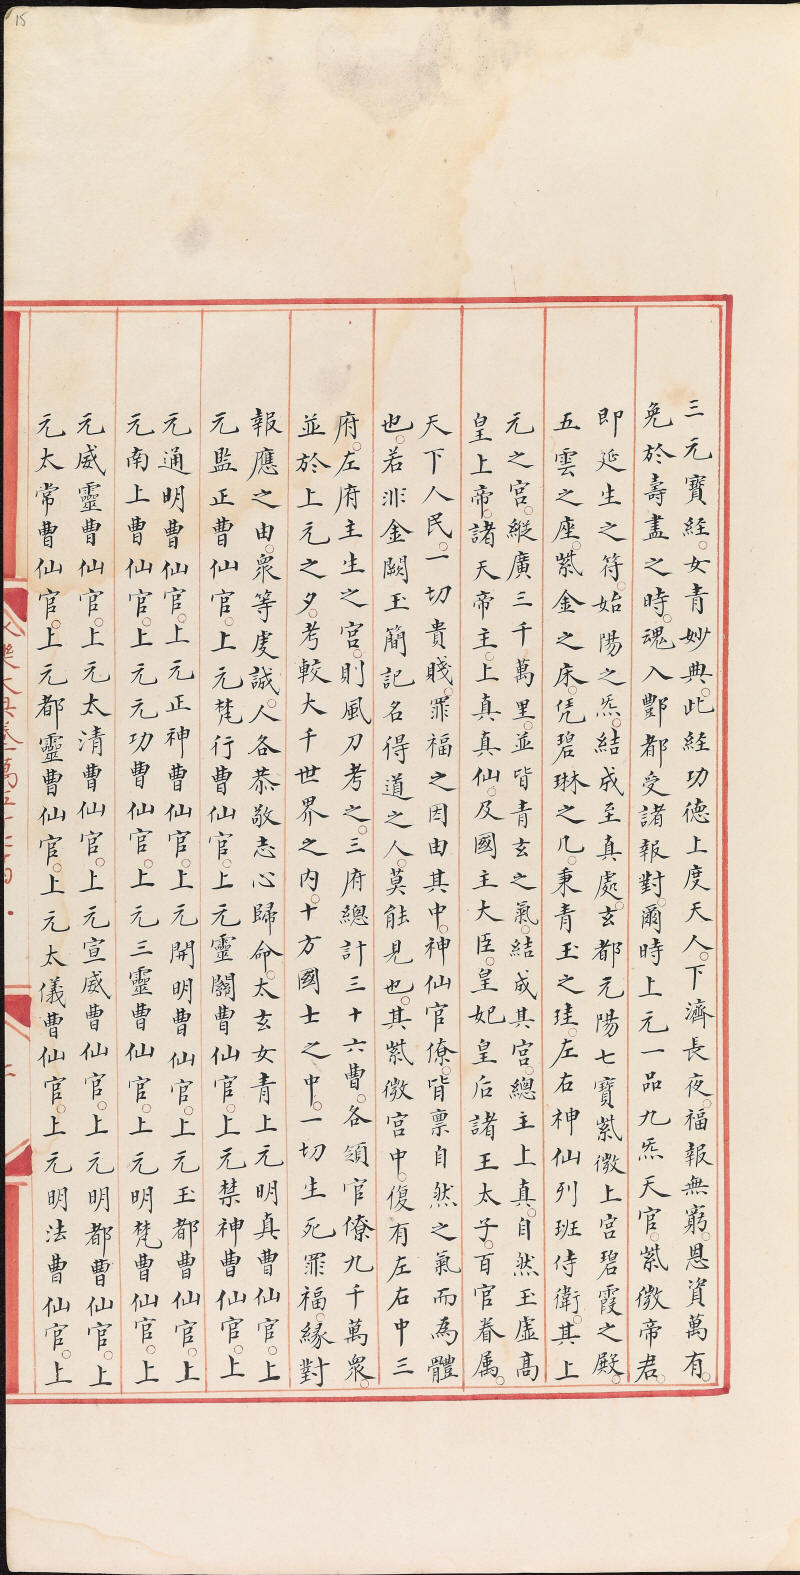 三元寳經。女青妙典。此經功德上度天人。下濟長夜。福報無窮。恩資萬有。
免於壽盡之時。魂入酆都受諸報對。爾時上元一品九炁天官。紫微帝君。
即延生之符。始陽之炁。結成至真處。玄都元陽七寳紫微上宫碧霞之殿。
五雲之座。紫金之床。凭碧琳之几。秉青玉之珪。左右神仙列班侍衛。其上
元之宫。縱廣三千萬里。並皆青玄之氣。結成其宫。總主上真。自然玉虚髙
皇上帝。諸天帝主。上真真仙。及國主大臣。皇妃皇后諸王太子。百官眷属。
天下人民。一切貴賤。罪福之因由其中。神仙官僚。皆禀自然之氣而爲體
也。若非金闕玉簡記名得道之人。莫能見也。其紫微宫中。復有左右中三
府。左府主生之宫。則風刀考之。三府總計三十六曹。各領官僚九千萬衆。
並於上元之夕。考較大千世界之内。十方國士之中。一切生死罪福。縁對
報應之由。衆等虔誠。人各恭敬志心歸命。太玄女青上元明真曹仙官。上
元監正曹仙官。上元梵行曹仙官。上元靈關曹仙官。上元禁神曹仙官。上
元通明曹仙官。上元正神曹仙官。上元開明曹仙官。上元玉都曹仙官。上
元南上曹仙官。上元元功曹仙官。上元三靈曹仙官。上元明梵曹仙官。上
元威靈曹仙官。上元太清曹仙官。上元宣威曹仙官。上元明都曹仙官。上
元太常曹仙官。上元都靈曹仙官。上元太儀曹仙官。上元明法曹仙官。上
15